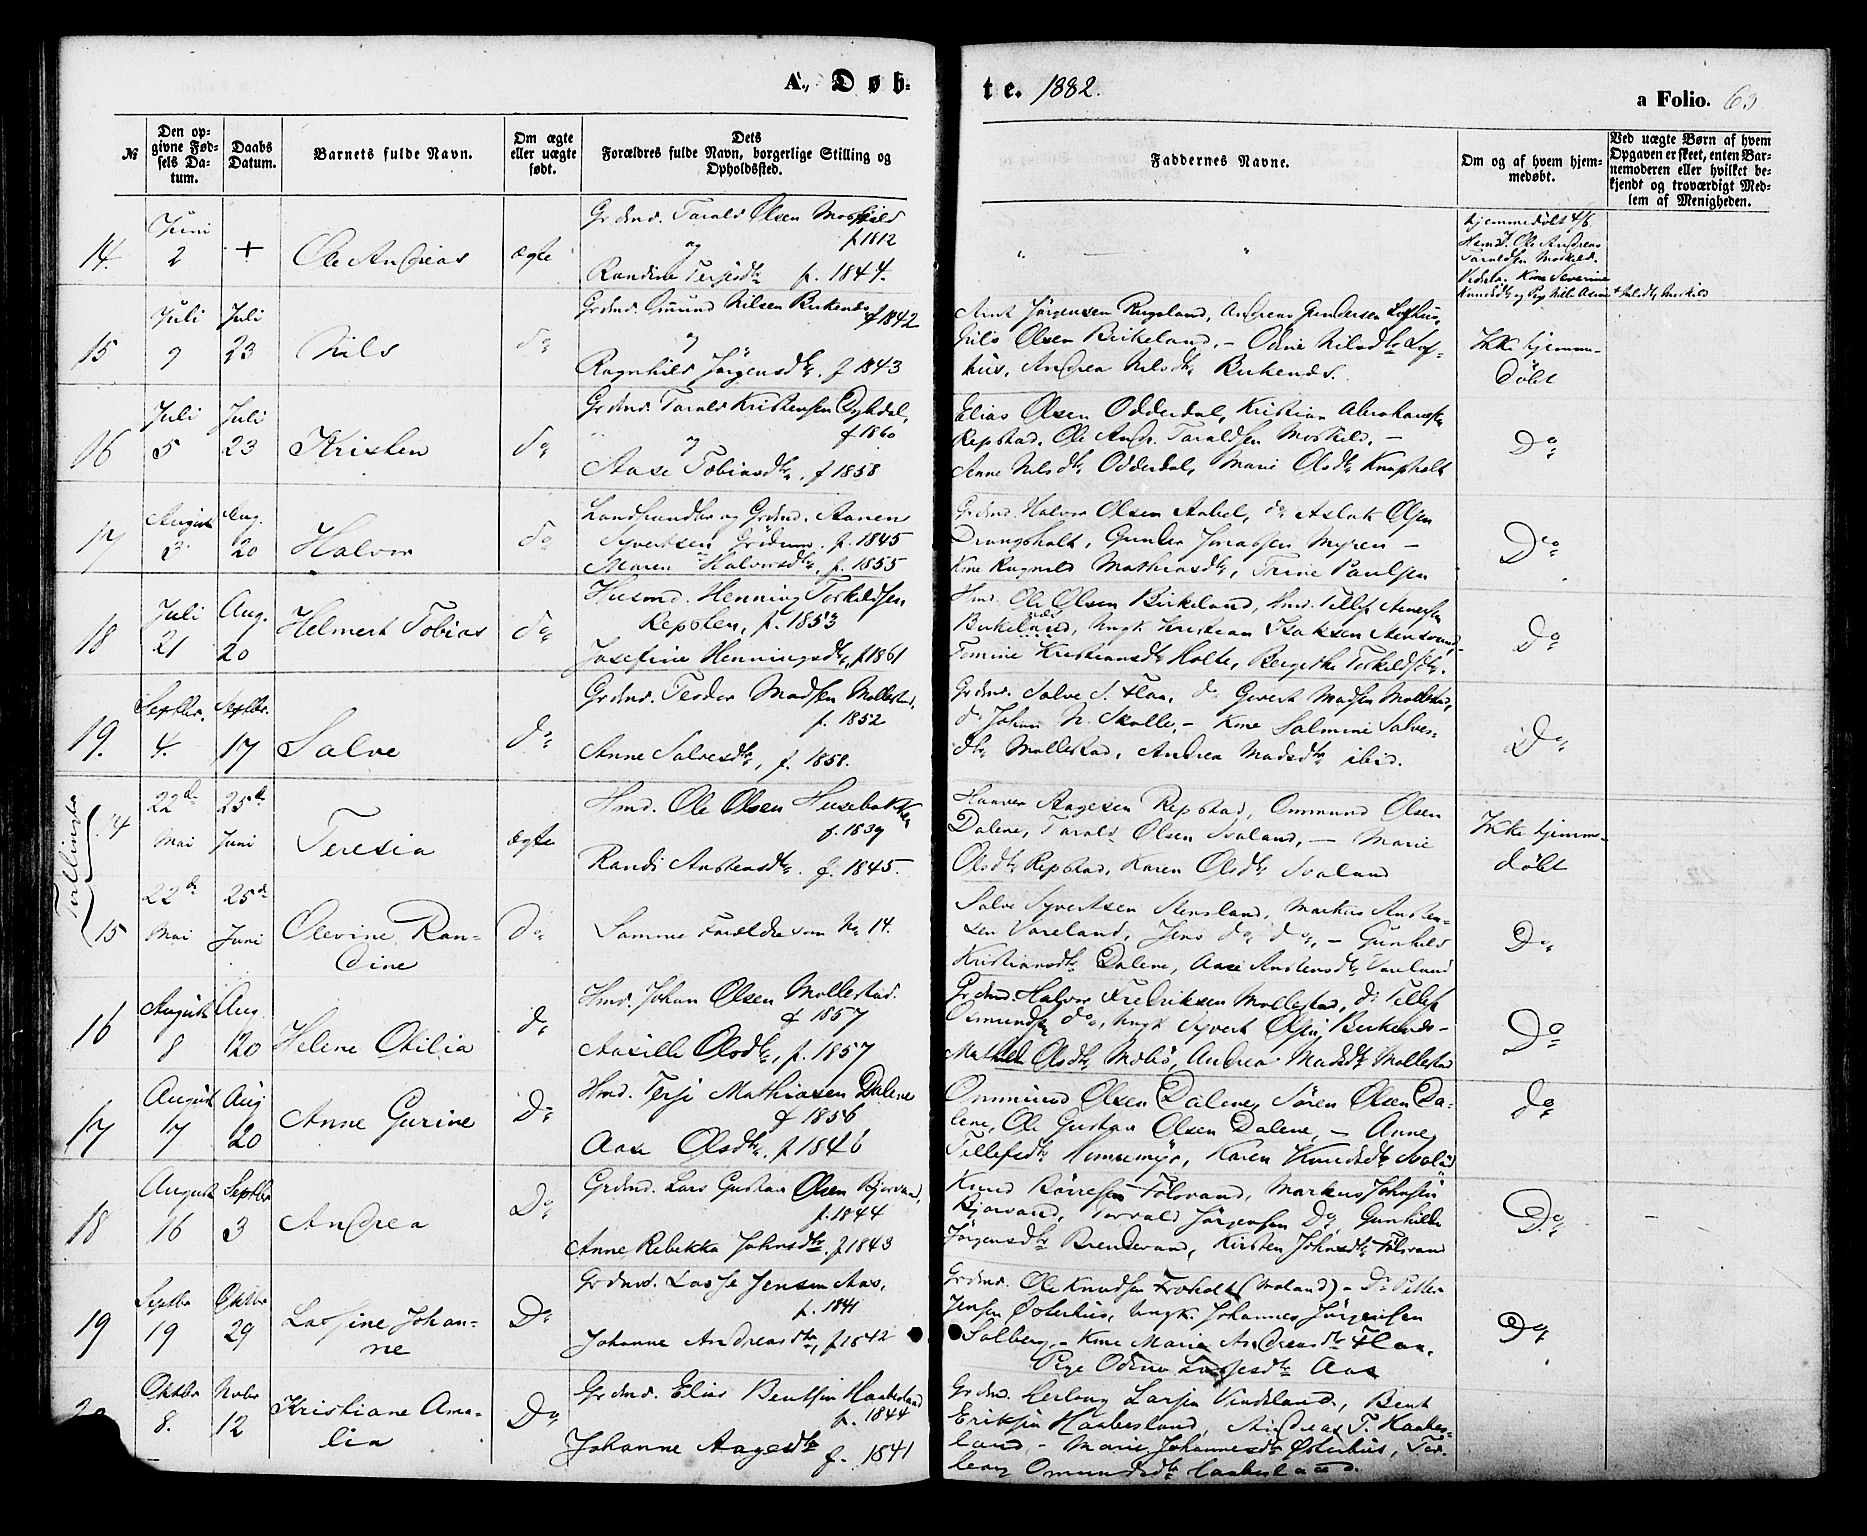 A., Døb-
te. 1882.
a Folio. 63
№
Den op-
givne Fød-
sels Da-
tum.
Daabs
Datum.
Barnets fulde Navn.
Om ægte
eller uægte
født.
Dets
Forældres fulde Navn, borgerlige Stilling og
Opholdssted.
Faddernes Navne.
Om og af hvem hjem-
medøbt.
Ved uægte Børn af hvem
Opgaven er skeet, enten Bar-
nemoderen eller hvilket be-
kjendt og troværdigt Med-
lem af Menigheden.
14. Juni 2 + Ole Andreas ægte
Grdmd. Tarald Olsen Moskild
f 1812
og
Randine Terjesdtr f. 1844.
" — "
hjemmedøbt 4/6
Ole Andreas
Taraldsen Moskild.
Kone Severine
15 Juli 9 Juli 23 Nils do
Grdmd. Gunund Nilsen Birkenes f 1842
og
Ragnhild Jørgensdtr. f 1843
Arnt Jørgensen Rugsland, Andreas Gundersen Lofthus,
Nils Olsen Birkeland, – Odine Nilsdtr Lof-
thus, Andrea Nilsdtr Birkenes.
Ikke hjemme-
døbt
16 Juli 5 Juli 23 Kristen do
Grdmd. Tarald Kristensen Dyhdal,
f 1860
og
Aase Tobiasdtr. f 1858
Elias Olsen Odderdal, Kristian Abrahamsen
Repstad, Ole Andr. Taraldsen Moskild, –
Anne Nilsdtr Odderdal, Marie Olsdtr Knapholt
Do
17 August 2. Aug. 20 Halvor do
Landhandler og Grdmd. Aanen
Syvertsen f. 1845
Maren Halvorsdtr. f. 1855
Grdmd. Halvor Olsen Aabel, do Aslak Olsen
Drangsholt, Gunder Jonassen Myren –
Kone Ragnild Mathiasdtr, Trine Paulsen
Do
18 Juli 21 Aug. 20 Helmert Tobias do
Husmd. Henning Torkildsen
Repsten, f. 1853
Josefine Henningsdtr, f 1861
Hmd. Ole Olsen Birkeland, Hmd. Tellef
Birkeland, Ungk Kristian Isaksen
Tomine Kristiansdtr Holte, Bergithe Torkildsdtr.
Do
19. Septbr. 4. Septbr. 17 Salve do
Grdmd. Peder Madsen Mollestad,
f. 1852
Anne Salvesdtr, f. 1858.
Grdmd. Salve S. Flaa, do Gjvert Madsen Mollestad,
do Johan N. Skolle, – Kone Salmine Salves-
dtr Mollestad, Andrea Madsdtr ibid.
Do
Tvillinger
14 22de Mai 25de Juni Teresia ægte
Hmd. Ole Olsen Husebakken
f. 1839
Randi Anstensdtr. f. 1845.
Haaver Aagesen Repstad, Ommund Olsen
Dalene, Tarald Olsen Svaland, – Marie
Olsdtr Repstad, Karen Olsdtr Svaland
Ikke hjemme-
døbt
15 22de Mai 25de Juni Olevine Ran-
dine Do
Samme Forældre som No 14.
Salve Syvertsen Stensland, Markus Ansten-
sen Vareland, Jens do do, – Gunhild
Kristiansdtr Dalene, Aase Anstensdtr Vareland
Do
16 August 8 Aug. 20 Helene Otilia do
Hmd. Johan Olsen Mollestad.
f 1857
Aasille Olsdtr, f. 1857
Grdmd. Halvor Fredriksen Mollestad, do Tellef
Osmundsen do, Ungk Syvert Olsen Birkenes –
Mathild Olsdtr Mobø, Andrea Madsdtr Mollestad
Do
17 August 17 Aug 20 Anne Gurine Do
Hmd. Terje Mathiasen Dalene
f 1856
Aase Olsdtr. f 1846
Ommund Olsen Dalene, Søren Olsen Da-
lene, Ole Gustav Olsen Dalene, – Anne
Tellefsdtr Himmemyr, Karen Knudsdtr Svaland
do
18 August 16 Septbr 3 Andrea Do
Grdmd. Lars Gustav Olsen Bjorvand,
f. 1844
Anne Rebekka Johnsdtr. f 1843
Knud Børresen Tolsvand, Markus Johnsen
Bjorvand, Torvald Jørgensen Do, Gunhilde
Jørgensdtr Brendevand, Kirsten Johnsdtr Tolsvand
Do
19 Septbr 19 Oktbr 29 Lassine Johan-
ne Do
Grdmd. Lasse Jensen Aas,
f. 1841
Johanne Andreasdtr, f 1842
Grdmd. Ole Knudsen Froholt (Moland) – Do Peder
Jensen Østerhus, Ungk. Johannes Jørgensen
Solberg, – Kone Marie Andreasdtr Flaa,
Pige Odine Lassesdtr Aas
Do
20 Oktbr 8. Nvbr 12 Kristiane Ama-
lia Do
Grdmd. Elias Bentsen Haabesland
f. 1844
Johanne Aagesdtr f. 1841
Grdmd. Herlaug Larsen Vindsland, Bent
Eriksen Haabesland, Andreas T. Haabes-
land, – Marie Johannesdtr Østerhus, Tor-
borg Omundsdtr Haabesland.